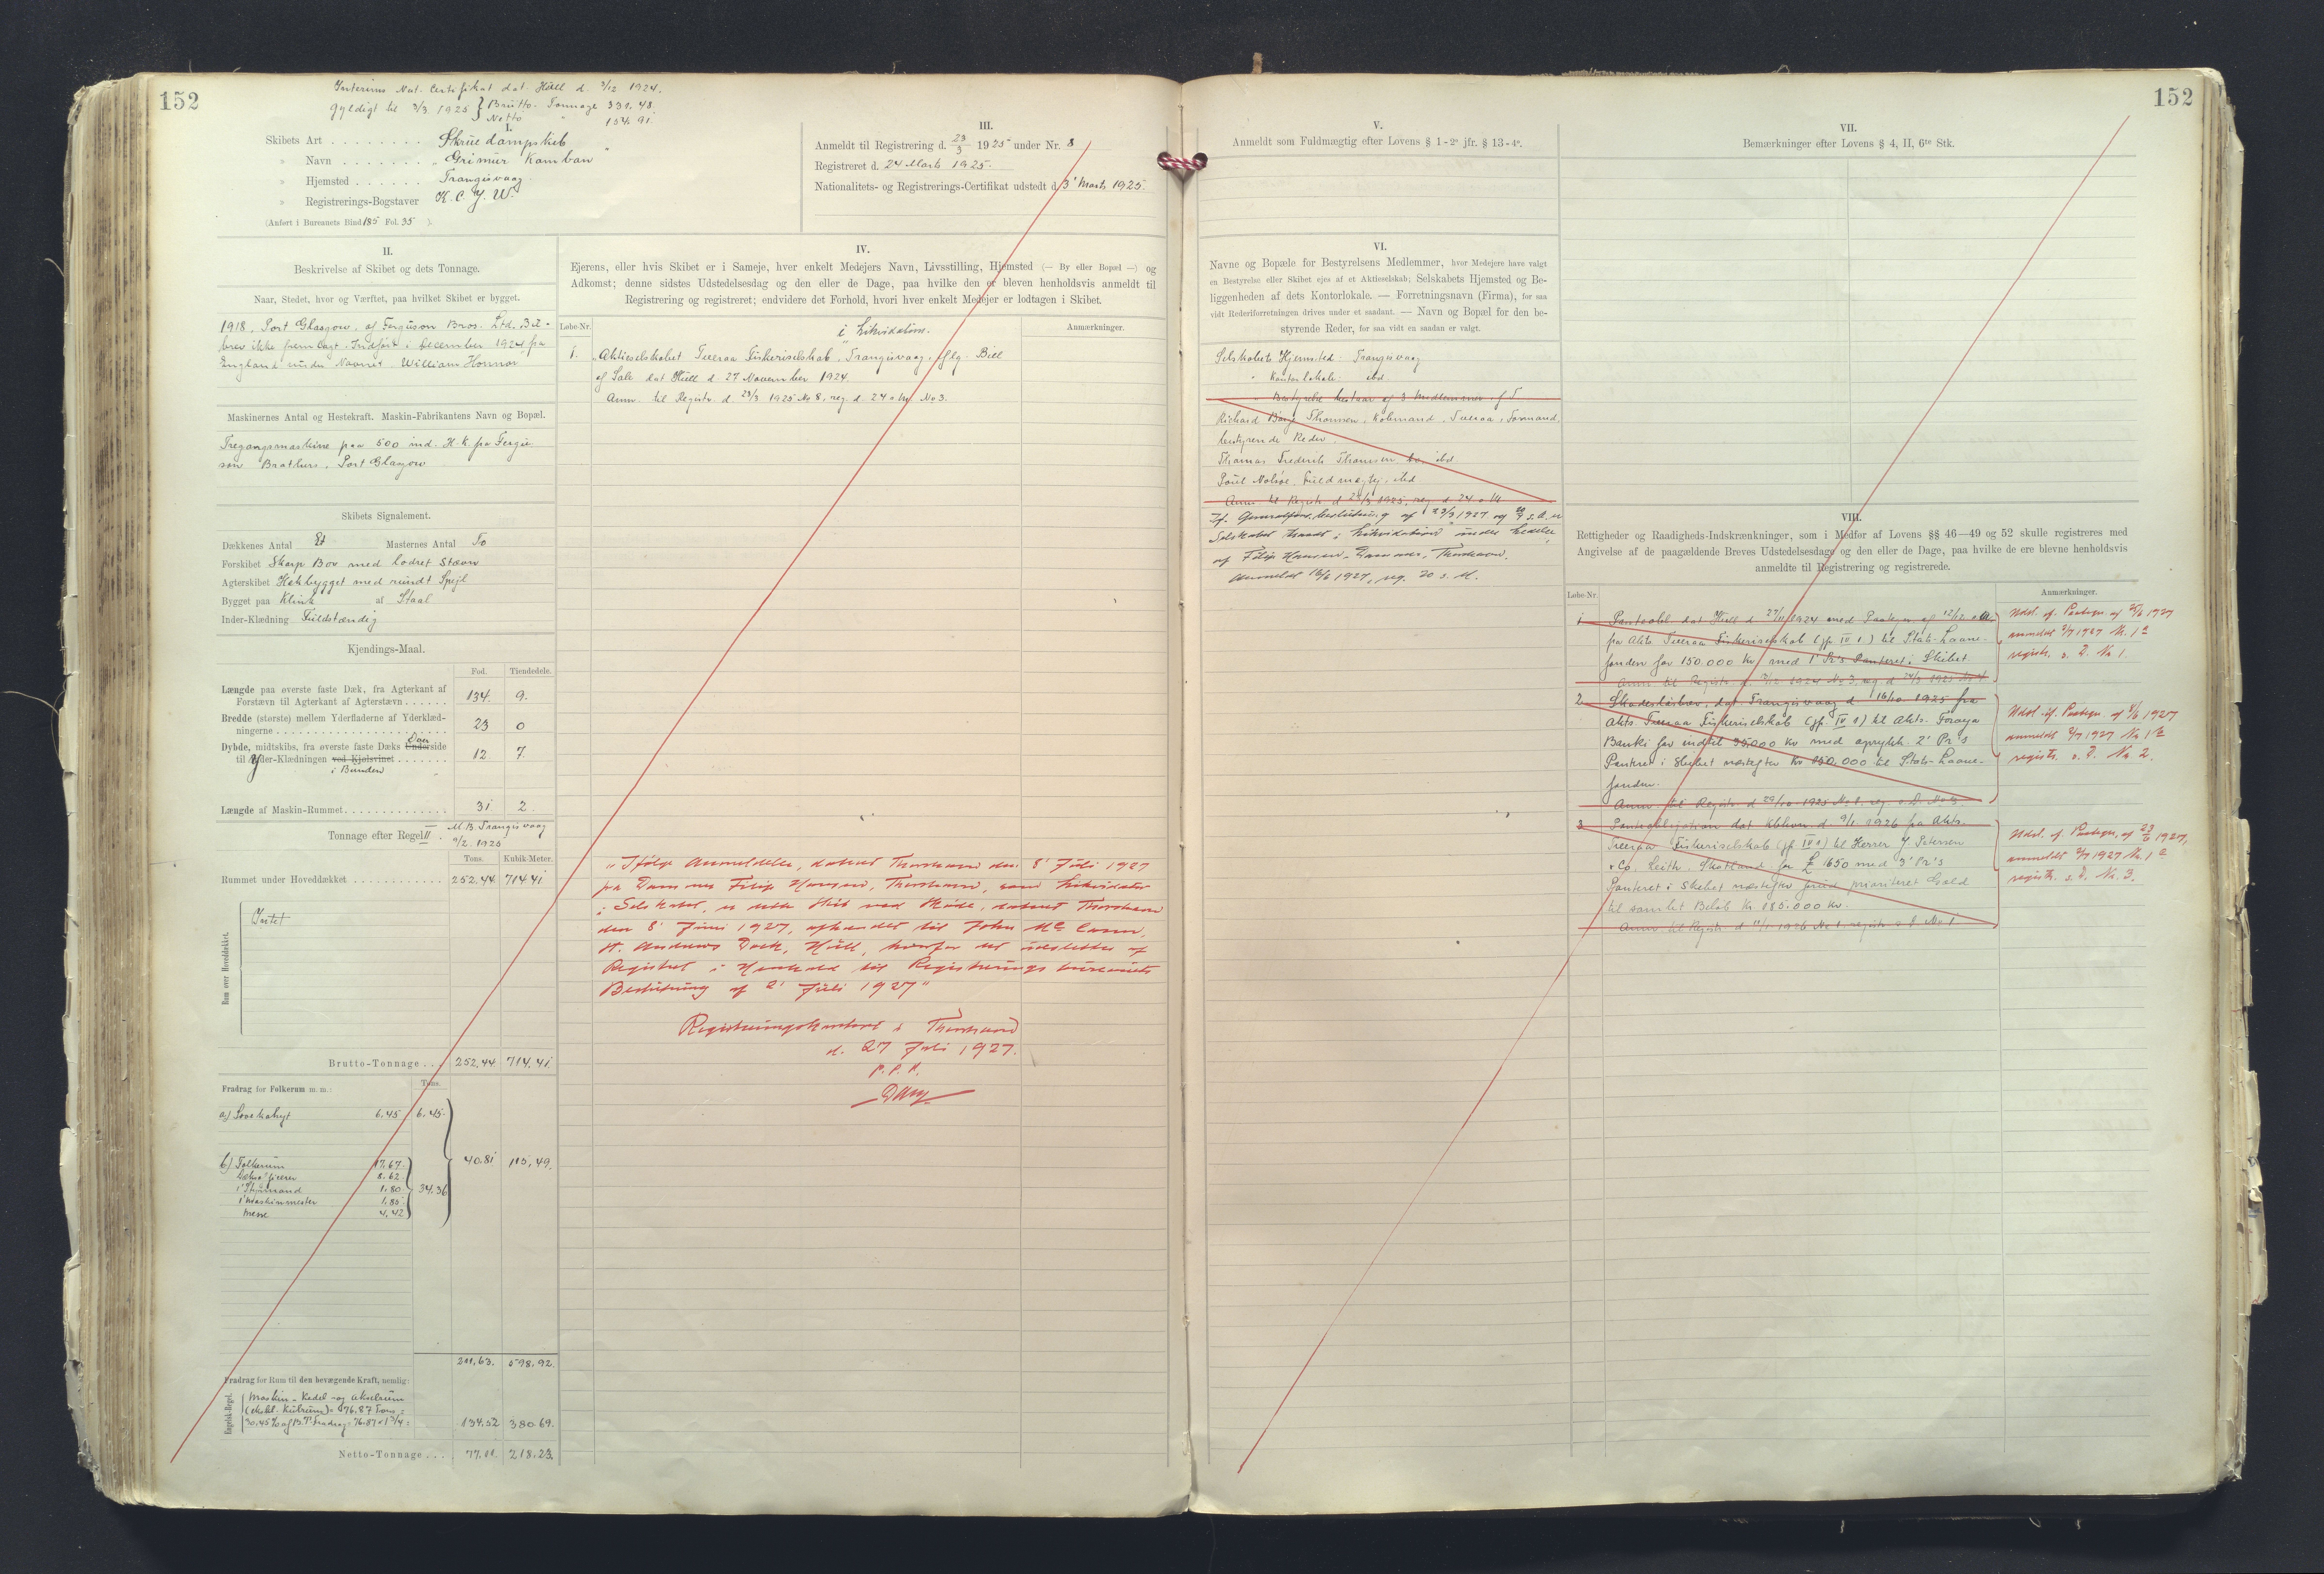 152
Interims Nat. Certifikat dat. Hull d. 3/12 1924.
gyldigt til 3/3 1925 } Brutto. Tonnage 331,48.
Netto " 134.91
I.
Skibets Art . . . . . . . . Skruedampskib
» Navn . . . . . . . „Grimur Kamban"
» Hjemsted . . . . . . Trangisvaag.
» Registrerings-Bogstaver N.C.J.W.
(Anført i Bureauets Bind 185 Fol. 35 ).
II.
Beskrivelse af Skibet og dets Tonnage.
Naar, Stedet, hvor og Værftet, paa hvilket Skibet er bygget.
1918. Port Glasgow. af Ferguson Bros. Ltd. Bil-
brev ikke fremlagt. Indført i December 1924 fra
England under Navnet William Honnor
Maskinernes Antal og Hestekraft. Maskin-Fabrikantens Navn og Bopæl.
Tregangsmaskine paa 500 ind. H.K. fra Fergu-
son Brothers, Port Glasgow
Skibets Signalement.
Dækkenes Antal Et Masternes Antal To
Forskibet Skarp Bov med lodret Stævn
Agterskibet Hækbygget med rundt Spejl
Bygget paa Klink af Staal
Inder-Klædning Fuldstændig
Kjendings-Maal.
Fod. Tiendedele.
Længde paa øverste faste Dæk, fra Agterkant af
Forstævn til Agterkant af Agterstævn . . . . . . 134. 9.
Bredde (største) mellem Yderfladerne af Yderklæd-
ningerne . . . . . . 23 0
Dybde, midtskibs, fra øverste faste Dæks Underside Over
til Yder-Klædningen ved Kjølsvinet . . . . . . . 12 7.
i Bunden
Længde af Maskin-Rummet . . . . . . 31 2
Tonnage efter Regel II. M.B. Trangisvaag
9/2. 1925
Tons. Kubik-Meter.
Rummet under Hoveddækket . . . . . . 252.44 714.41
Rum over Hoveddækket.
Intet
Brutto-Tonnage . . . 252.44 714.41
Fradrag for Folkerum m. m.: Tons.
a.) Lovekahyt 6.45 6.45.
40.81 115.49.
b) Folkerum 17.67.
8.62
1' Styrmand 1.80 34.36
1' Maskinmester 1.85
Messe 4.42
211.63. 598.92.
Fradrag for Rum til den bevægende Kraft, nemlig:
Engelsk-Regel.
Maskin-Kedel-og Akselrum
(ekskl. Kulrum) = 76.87 Tons =
30.45% af B.T. Fradrag = 76.87 × 1 3/4 = 134.52 380.69.
Netto-Tonnage . . . 77.11. 218.23.
III.
Anmeldt til Registrering d. 23/3 1925 under Nr. 8
Registreret d. 24 Marts 1925.
Nationalitets- og Registrerings-Certifikat udstedt d. 3' Marts 1925.
IV.
Ejerens, eller hvis Skibet er i Sameje, hver enkelt Medejers Navn, Livsstilling, Hjemsted (— By eller Bopæl —) og
Adkomst; denne sidstes Udstedelsesdag og den eller de Dage, paa hvilke den er bleven henholdsvis anmeldt til
Registrering og registreret; endvidere det Forhold, hvori hver enkelt Medejer er lodtagen i Skibet.
Løbe-Nr. Anmærkninger.
i Likvidation.
1. „Aktieselskabet Tveraa Fiskeriselskab", Trangisvaag, iflg. Bill
of Sale dat Hull d. 27 November 1924.
Anm. til Registr. d. 23/3 1925 No 8, reg. d. 24 s. M. No 3.
„Ifølge Anmeldelse, dateret Thorshavn den 8' Juli 1927
fra Dommer Filip Hansen, Thorshavn, som Likvidator
i Selskabet, er dette Skib ved Skøde, dateret Thorshavn
den 8' Juni 1927, afhændet til John Mc Cann,
St. Andrews Dock, Hull, hvorfor det udslettes af
Registret i Henhold til Registreringsbureauets
Beslutning af 2' Juli 1927"
Registreringskontoret i Thorshavn
d. 27 Juli 1927.
P. P. A.
V.
Anmeldt som Fuldmægtig efter Lovens § 1 - 2° jfr. § 13 - 4°.
VI.
Navne og Bopæle for Bestyrelsens Medlemmer, hvor Medejere have valgt
en Bestyrelse eller Skibet ejes af et Aktieselskab; Selskabets Hjemsted og Be-
liggenheden af dets Kontorlokale. — Forretningsnavn (Firma), for saa
vidt Rederiforretningen drives under et saadant. — Navn og Bopæl for den be-
styrende Reder, for saa vidt en saadan er valgt.
Selskabets Hjemsted: Trangisvaag
" Kontorlokale: ibd.
" Bestyrelse bestaar af 3 Medlemmer af
Richard Bang Thomsen, Købmand, Tveraa, Formand,
bestyrende Reder.
Thomas Frederik Thomsen, ibd.
Poul Nolsøe, Fuldmægtig, ibd
Anm. til Registr. d. 23/3 1925, reg. d. 24 s. M.
If. Generalfors. beslutning af 23/3 1927 og
Selskabet traadt i „Likvidation" under Ledelse
af Filip Hansen, Dommer, Thorshavn.
Anmeldt 16/6 1927, reg. 20 s. M.
152
VII.
Bemærkninger efter Lovens § 4, II, 6te Stk.
VIII.
Rettigheder og Raadigheds-Indskrænkninger, som i Medfør af Lovens §§ 46—49 og 52 skulle registreres med
Angivelse af de paagældende Breves Udstedelsesdage og den eller de Dage, paa hvilke de ere blevne henholdsvis
anmeldte til Registrering og registrerede.
Løbe-Nr. Anmærkninger.
1 Panteobl. dat Hull d. 27/11 1924 med Paategn. af 12/12 s. A.
fra Akts. Tveraa Fiskeriselskab (jfr. IV 1.) til Stats-Laane-
fonden for 150.000 Kr med 1' Pr's Panteret i Skibet.
Udsl. if. Paategn. af 25/6 1927
anmeldt 2/7 1927 Nr. 1 a
registr. s. D. No 1.
2 Skadesløsbrev, dat. Trangisvaag d. 16/10 1925 fra
Akts. Tveraa Fiskeriselskab (jfr. IV 1) til Akts. Færøya
Banki for indtil 35.000 Kr med oprykk. 2' Pr's
Panteret i Skibet næstefter Kr 150.000 til Stats-Laane-
fonden.
Anm. til Registr. d. 29/10 1925 No 1, reg. s. D. No 3.
Udsl. if. Paategn. af 8/6 1927
anmeldt 2/7 1927 No 1 b
registr. s. D. No 2.
3 Panteobligation dat. Kbhvn. d. 9/1 1926 fra Akts.
Tveraa Fiskeriselskab (jfr. IV 1) til Herrer J. Petersen
& Co. Leith. Skotland for £ 1650 med 3' Pr's
Panteret i Skibet næstefter forud prioriteret Gæld
til samlet Beløb Kr. 185.000 Kr.
Anm. til Registr. d. 11/1 1926 No 1. registr. s. D. No 1
Udsl. if. Paategn. af 23/6 1927,
anmeldt 2/7 1927 Nr. 1 c
registr. s. D. No. 3.